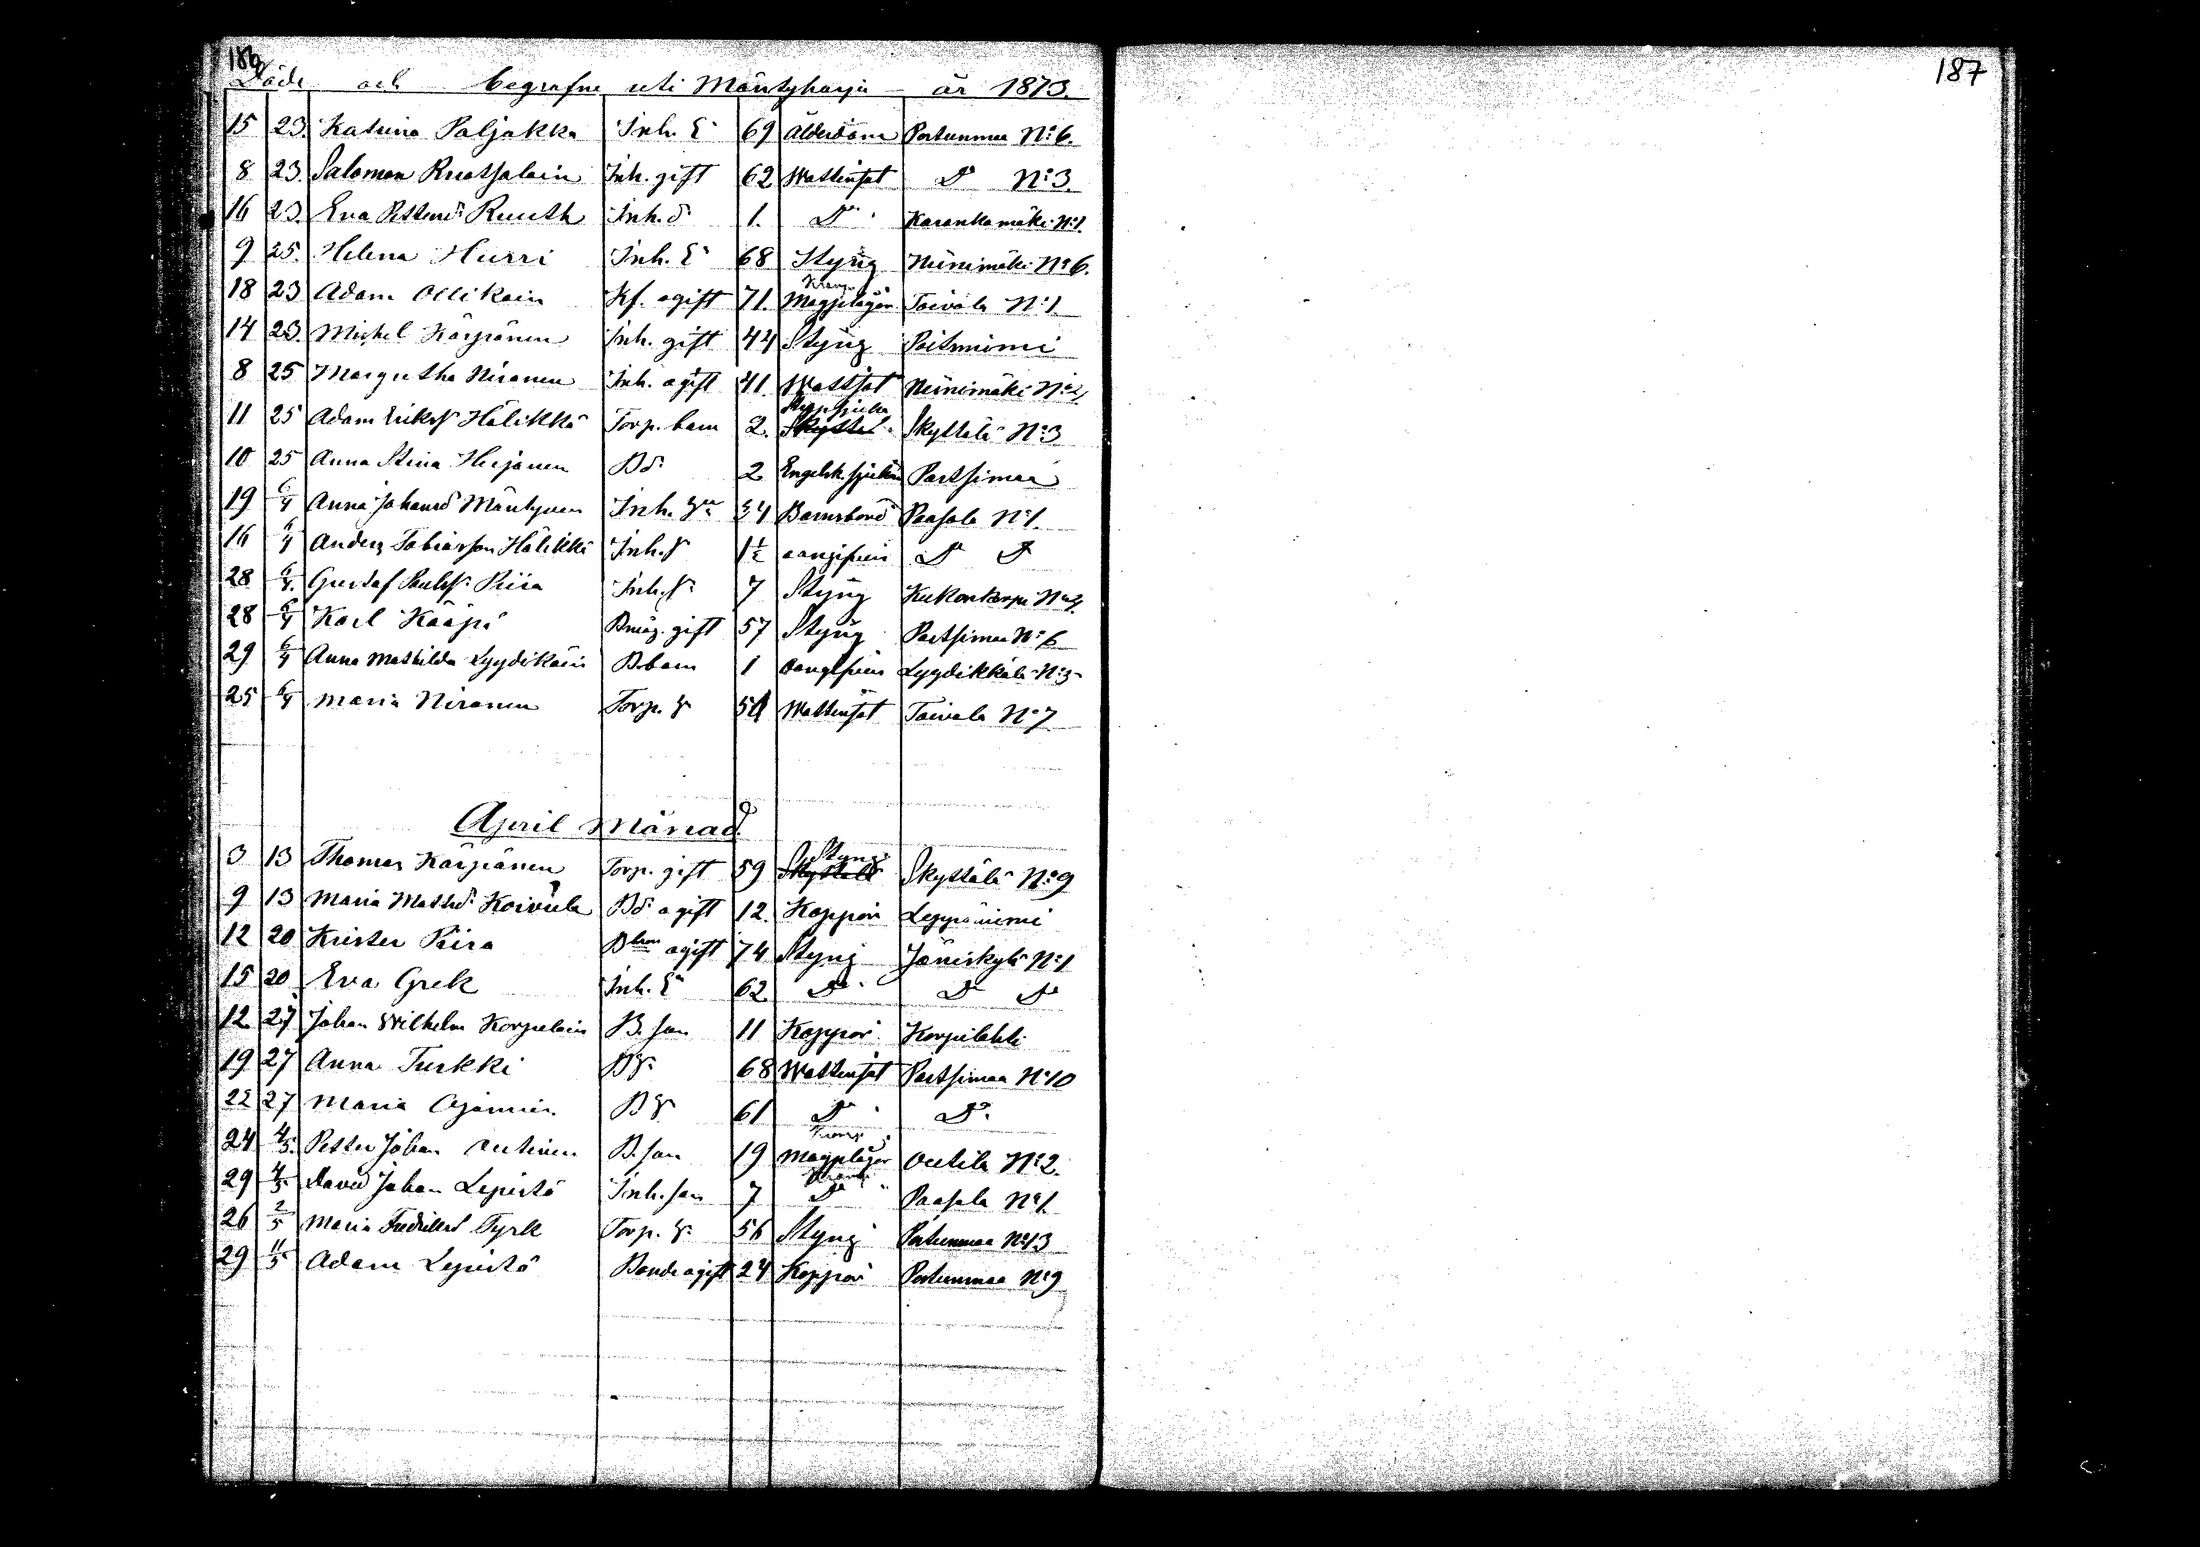 186
187
Döde och begrafne uti Mäntyharju år 1873.
15 23. Katrina Paljakka Inh. E 69 Ålderdom Pertunmaa N:o 6.
8 23. Salomon Ruotsalain Inh. gift 62 Wattusot Do N:o 3.
16 23. Eva Pettersd. Ruuth Inh. d. 1. Do Karankamäki N:o 1.
9 25. Helena Hurri Inh. E 68 Styng Niinimäki N:o 6.
18 23 Adam Ollikain Kf. ogift 71. Magplågor Toivola N:o 1.
14 23. Michel Kärpänen Inh. gift 44 Styng
8 25 Margretha Niranen Inh. ogift 41. Wattsot Niinimäki N:o 2
11 25 Adam Erikss. Hälikkä Torp. barn 2. Skyttälä N:o 3
10 25 Anna Stina Heijonen Bd. 2 Engelsk. sjukan Partsimaa
19 6/4 Anna Johansd. Mäntynen Inh. 34 Barnsbörd Paasola N:o 1.
16 6/4 Anders Tobiasson Hälikkä Inh. s. 1½ oangifven Do Do
28 6/4 Gustaf Paulss. Piira Inh. s. 7 Styng
28 6/4 Karl Kääpä Bmåg. gift 57 Styng Partsimaa N:o 6
29 6/4 Anna Mathilda Lyydikäin B. barn 1 oangifven Lyydikkälä N:o 3
25 6/4 Maria Niranen Torp. h. Wattusot Toivola N:o 7
April Månad.
3 13 Thomas Kärpänen Torp. gift 59 Styng Skyttälä N:o 9
9 13 Maria Mattsd. Koivula Bd. ogift 12. Koppor Leppäniemi
12 20 Krister Piira B ogift 74 Styng Jäniskylä N:o 1
15 20 Eva Grek Inh. E 62 Do Do Do
12. 27 Johan Wilhelm Korpelain B. son 11 Koppor Korpilahti
19 27 Anna Turkki B h. 68 Wattusot Partsimaa N:o 10
22 27 Maria B h. 61 Do Do
24 4/5. Petter Johan Outinen B. son 19 Magplågor Outila N:o 2.
29 4/5 David Johan Lepistö Inh. son 7 Do Paasola N:o 1
26 2/5 Maria Fredriksd. Tyrk Torp. h. 56 Styng Pertunmaa N:o 13
29 11/5 Adam Lepistö Bonde ogift 24 Koppor Pertunmaa N:o 9